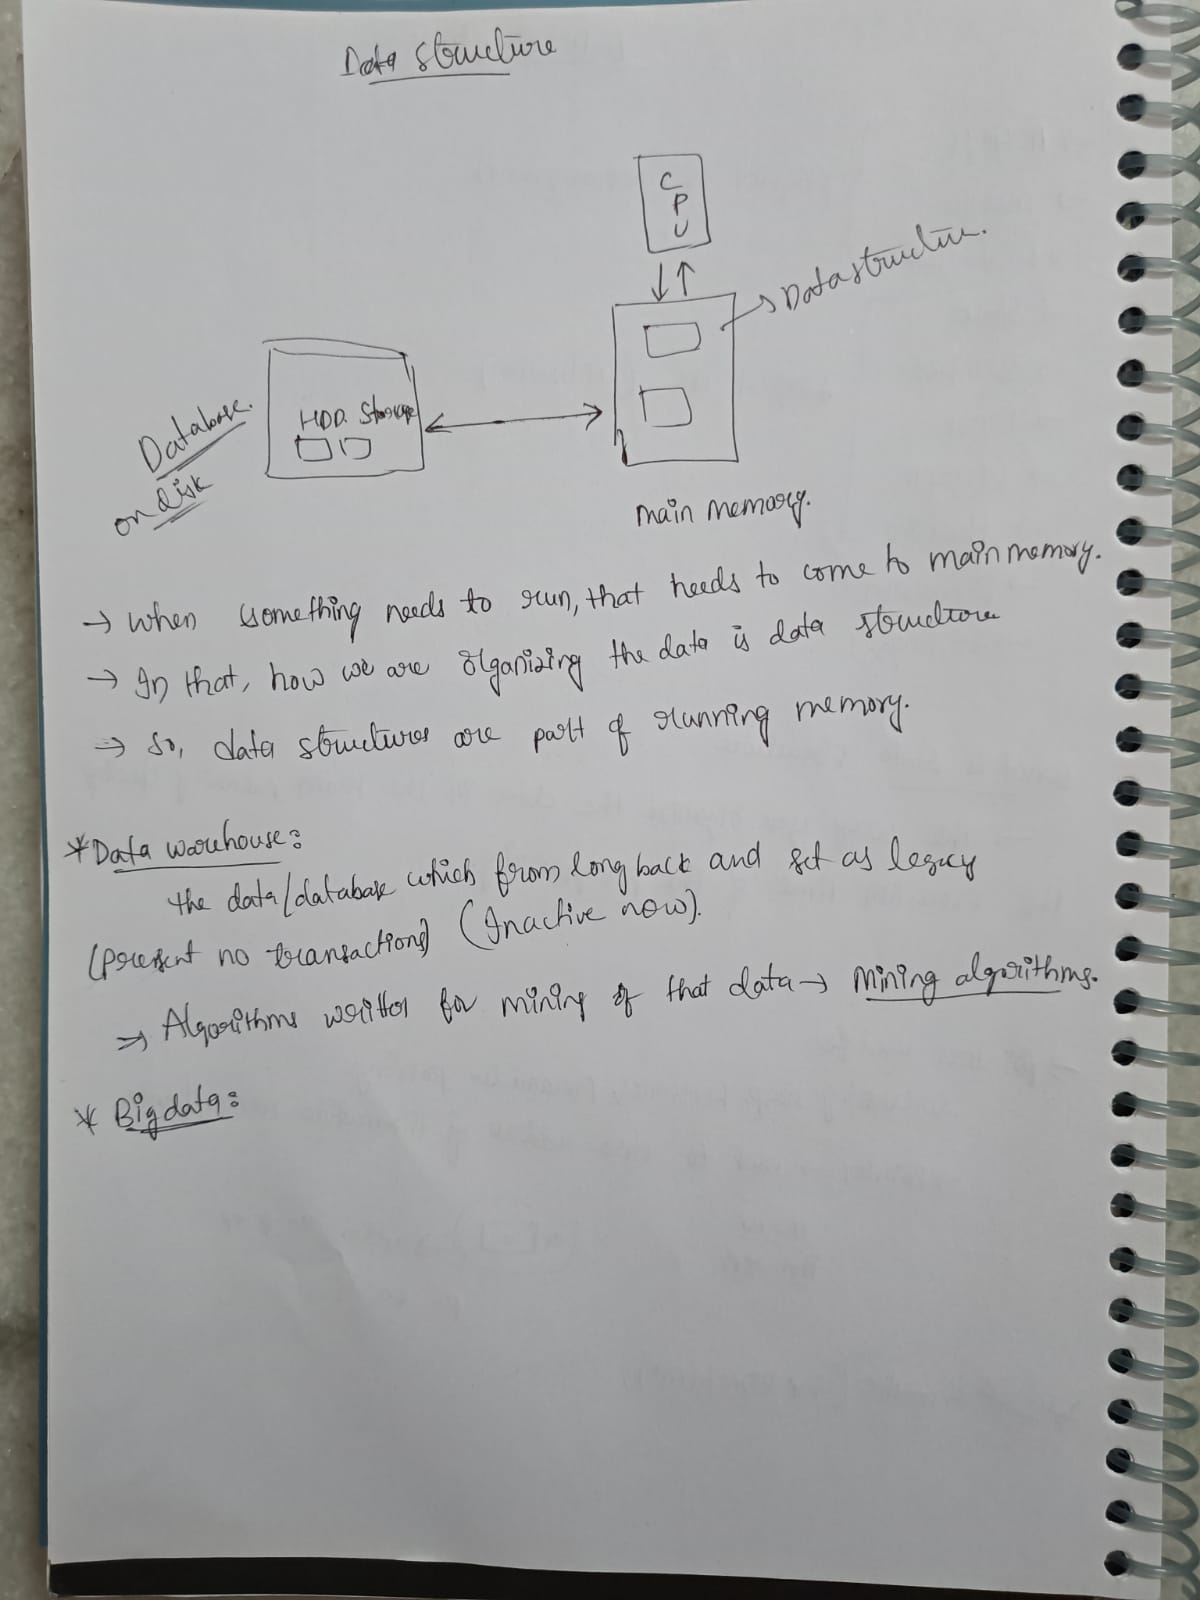 Data structure
C
P
U
Datastructure.
HDD. Storage
Database.
on disk
main memory.
→ When something needs to run, that needs to come to main memory.
→ In that, how we are organizing the data is data structure
→ So, data structures are part of running memory.
* Data warehouse:
the data/database which from long back and set as legacy
(present no transactions) (Inactive now).
→ Algorithms written for mining of that data → Mining algorithms.
* Big data: